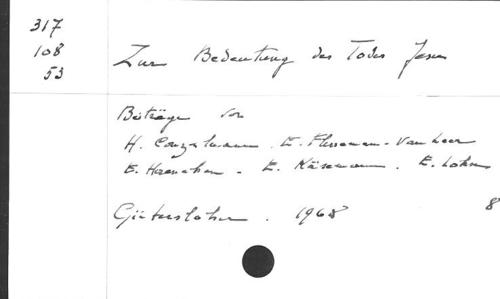 317
108
53
Zur Bedeutung des Todes Jesu
Beiträge von
H. Conzelmann. E. Flesseman-Van Leer
E. Haenchen. E. Käsemann. E. Lohse
Gütersloher. 1968 8